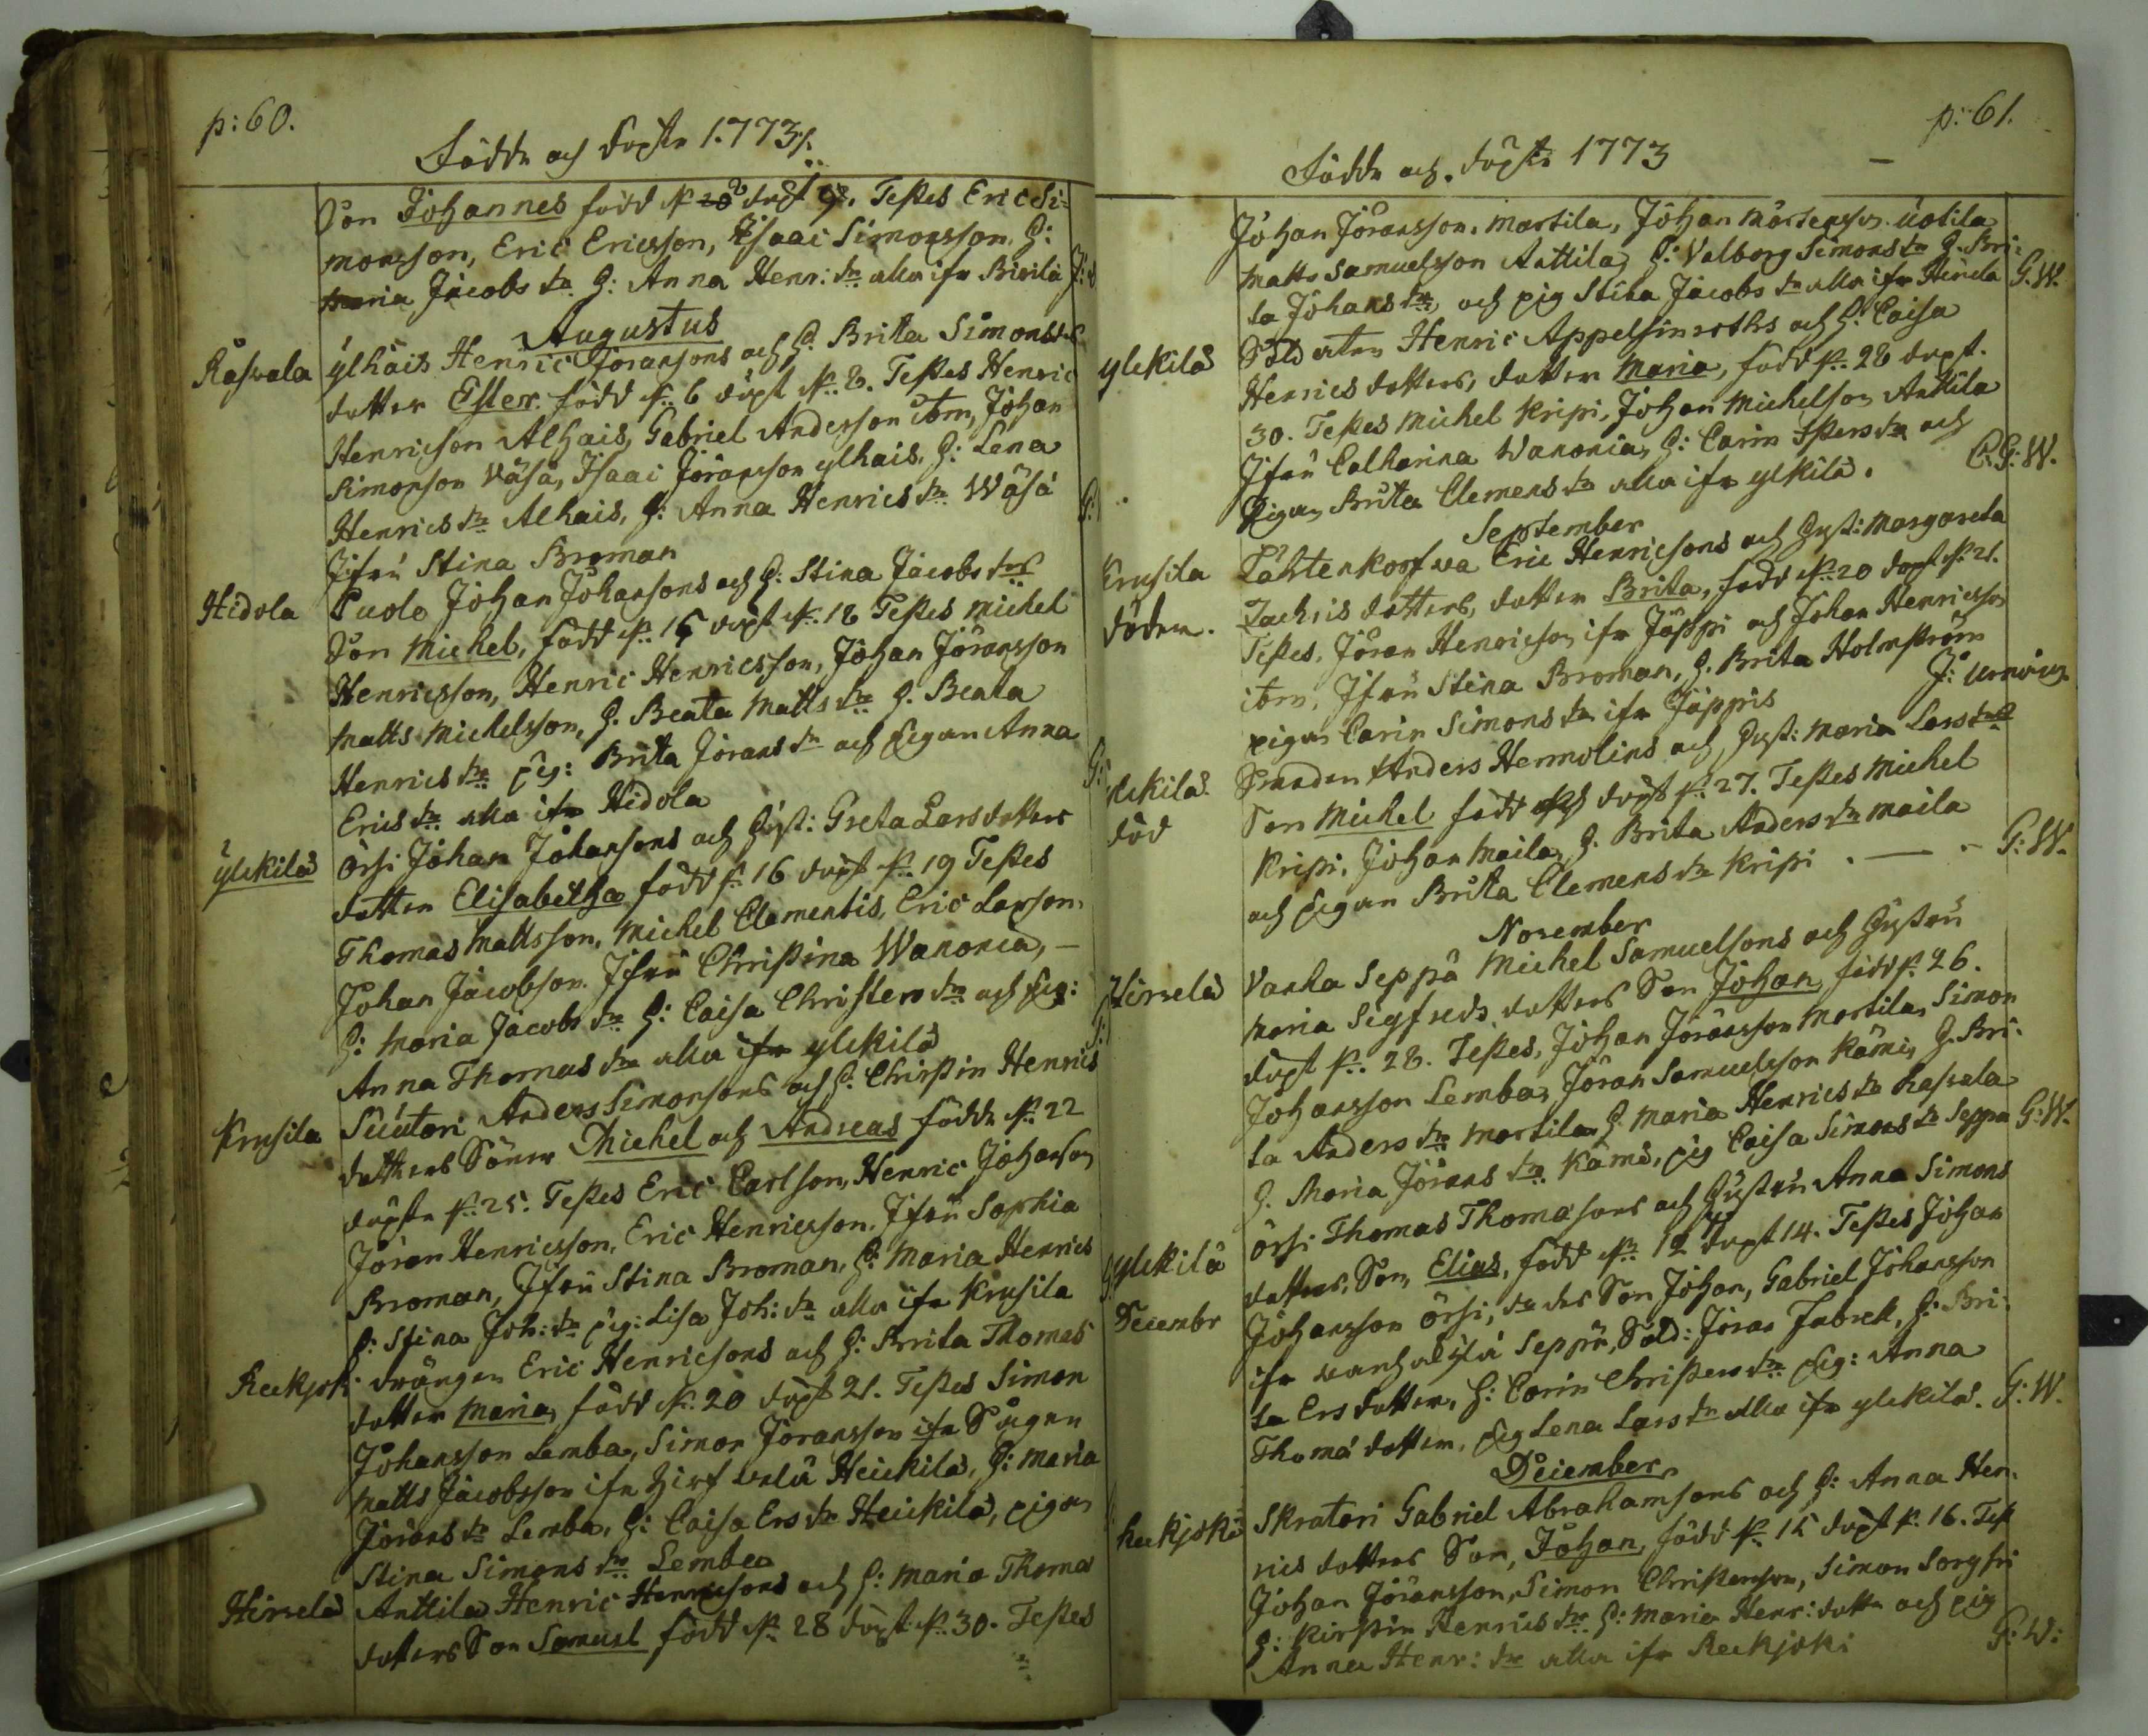 p: 60.
Födde och döpte 1773
Son Johannes född d. dopt Testes Eric Si-
monsson, Eric Ericsson, Isaac Simonsson, H:
Maria Jacobs dr H: Anna Henr: dr alla ifr
Augustus
Raswala Ylhais Henric Joransons och H. Brita Simons
dotter Ester född d. 6 döpt d. 8. Testes Henric
Henricson Alhais, Gabriel Andersson ibm, Johan
Simonson Wäsä, Isaac Joransson ylhais, H: Lena
Henrics dr Alhais, H: Anna Henrics dr Wäsä
Jfru Stina Broman
Hidola Puolo Johan Johansons och H: Stina Jacobs drs
Son Michel, född d. 15 döpt d. 18 Testes Michel
Henricsson, Henric Henricsson, Johan Joransson
Matts Michelsson, H. Beata Matts dr H. Beata
Henrics dr pig: Brita Jorans dr och Pigan Anna
Erics dr alla ifr Hidola
ylekilä Örsi Johan Johansons och Hust: Greta Larsdotters
dotter Elisabetha född d. 16 döpt d. 19 Testes
Thomas Mattsson, Michel Clementis, Eric Larson,
Johan Jacobson. Jfru Christina Wanonia, -
H: Maria Jacobs dr H: Caisa Christers dr och Pig:
Anna Thomas dr alla ifr ylekilä
Krusila Suutari Anders Simonsons och H. Christin Henrics
dotters Söner Michel och Andreas födde d. 22
döpte d. 25. Testes Eric Carlson, Henric Johanson
Joran Henricsson, Eric Henricsson, Jfru Sophia
Broman, Jfru Stina Broman, H: Maria Henrics
H: Stina Joh: dr pig: Lisa Joh: dr alla ifr Krusila
Reekjoki drängen Eric Henricsons och H: Brita Thomas
dotter Maria, född d. 20 döpt 21. Testes Simon
Johansson Lemba, Simon Joransson ifr
Matts Jacobsson ifr Heickilä, H: Maria
Jorans dr Lemba, H: Caisa Ers dr Heickilä, pigan
Stina Simons dr Lemba
Hirvelä Anttila Henric Henricsons och H: Maria Thomas
dotters Son Samuel född d. 28 döpt d. 30. Testes
p: 61.
Födde och döpte 1773
Johan Joransson, Martila, Johan Mårtensson Uotila
Matts Samuelsson Anttila, H: Valborg Simons dr H. Bri-
ta Johans dr, och pig Stina Jacobs dr alla ifr Hirvela G. W.
ylekilä Soldaten Henric Appelsinroths och H: Caisa
Henricsdotters, dotter Maria, född d. 28 döpt.
30. Testes Michel Kripi, Johan Michelson Anttila
Jfru Catharina Wanonia, H: Carin dr och
Pigan Brita Clemens dr alla ifr ylekilä. C. G: W.
September
Krusila Lähtenkorfva Eric Henricsons och Hust: Margareta
dödem. Zachris dotters, dotter Brita, född d. 20 döpt d. 21.
Testes, Joran Henricsson ifr Jäppi och Johan Henricsson
ibm, Jfru Stina Broman, H. Brita Holmström
pigan Carin Simons dr ifr Jäppis
ylekilä Smeden Anders Hermolins och Hust: Maria Lars drs
död Son Michel född och döpt d. 27. Testes Michel
Kripi, Johan Maila, H. Brita Anders dr Maila
och Pigan Brita Clemens dr Kripi . — - G: W.
November
Hirvelä Vanha Seppä Michel Samuelsons och Hustru
Maria Sigfreds dotters Son Johan född d. 26.
döpt d. 28. Testes, Johan Joransson Martila, Simon
Johansson Lemba, Joran Samuelsson Kämi, H. Bri-
ta Anders dr Martila H. Maria Henrics dr
H. Maria Jorans dr Kämi, pig Caisa Simons dr Seppä G: W.
ylekilä Örsi Thomas Thomasons och Hustru Anna Simons
dotters, Son, Elias, född d. 12 döpt 14. Testes Johan
Decembr Johansson Örsi, Son Johan, Gabriel Johansson
ifr Seppä, Sold: Joran H: Bri-
ta Ersdotter, H: Carin Christers dr Pig: Anna
Thomä dotter, Pig Lena Lars dr alla ifr ylekilä. G: W.
December
Reekjoki Skratari Gabriel Abrahamsons och H: Anna Hen-
rics dotters Son, Johan, född d. 15 döpt d. 16. Test
Johan Joransson, Simon Christersson, Simon Sorgfri
H: Kirstin Henrics dr H: Maria Henr: dotter och pig
Anna Henr: dr alla ifr Reekjoki G: W: